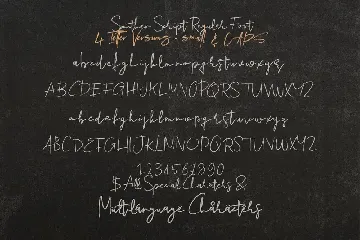 Southen Script Regular Font
4 letter Versions : small & CAPS
abcdefghijklmnopqrstuvwxyz
ABCDEFGHIJKLMNOPQRSTUVWXYZ
abcdefghijklmnopqrstuvwxyz
ABCDEFGHIJKLMNOPQRSTUVWXYZ
1234567890
$ All Special Charaters &
Multilanguage Charazters